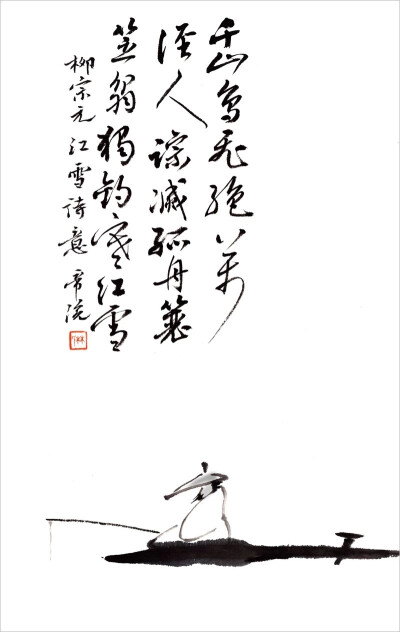 千山鸟飞绝萬
径人踪滅孤舟蓑
笠翁獨钓寒江雪
柳宗元江雪诗意